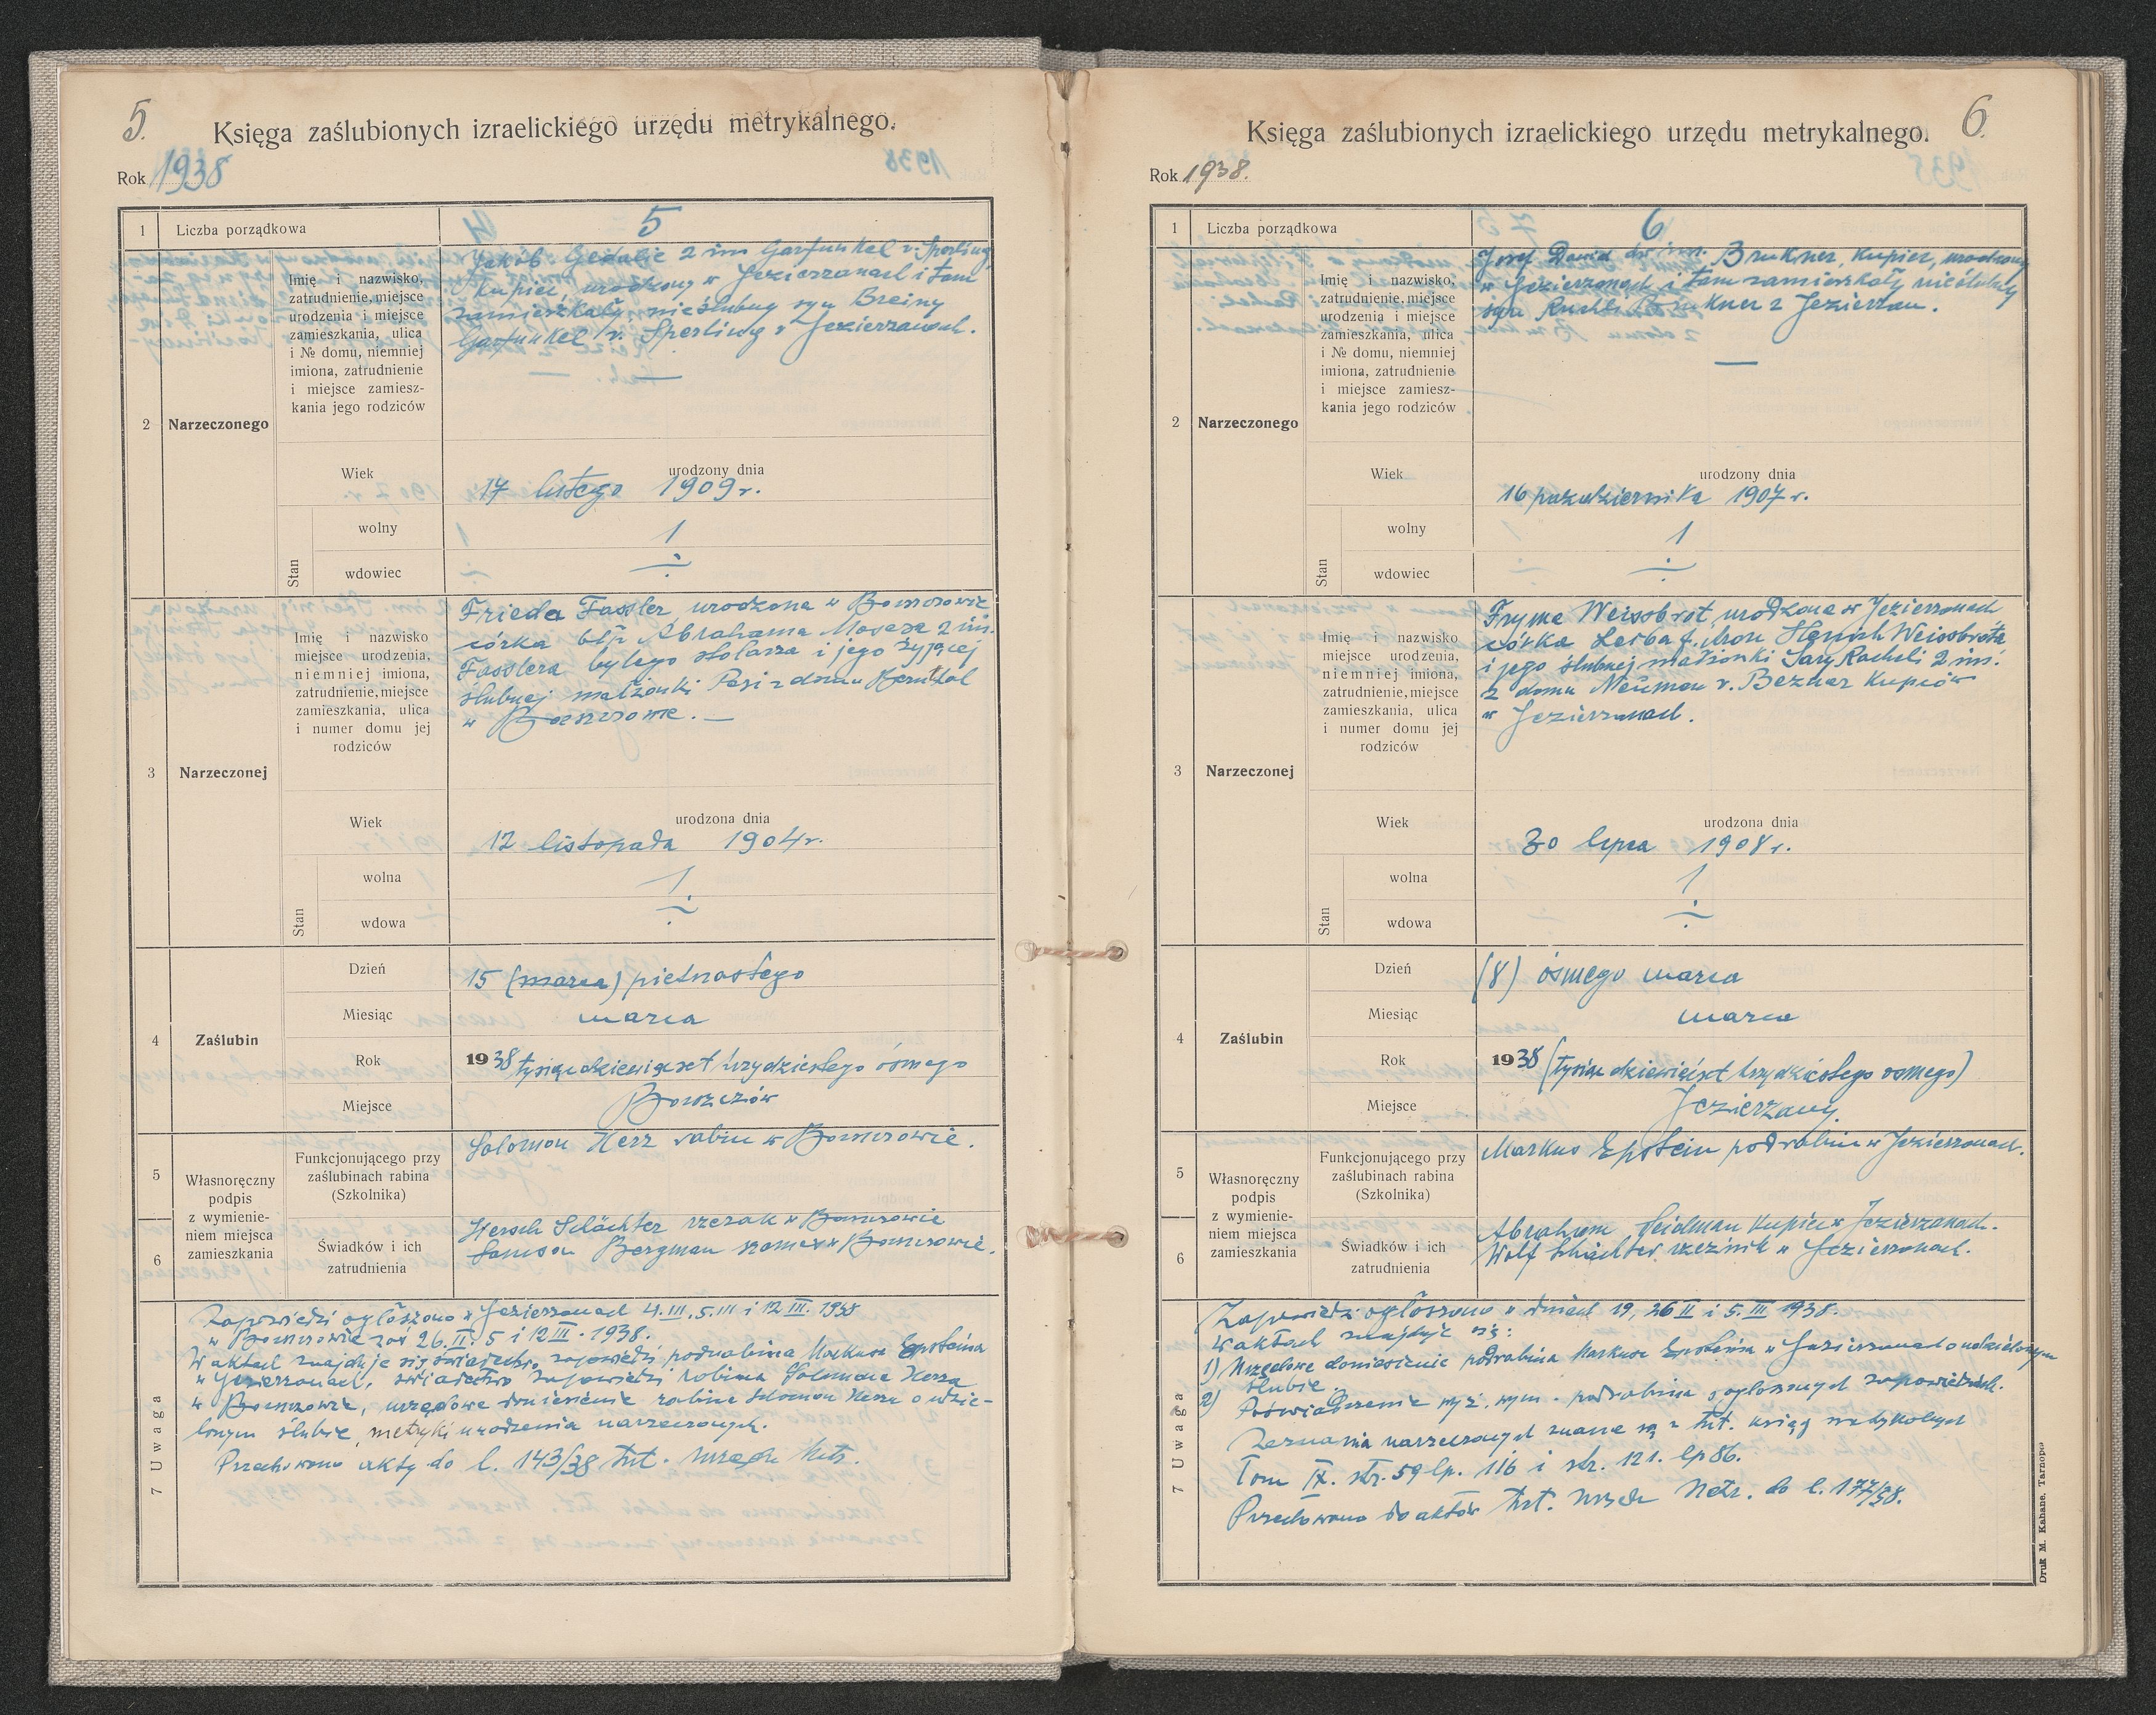 5.
Księga zaślubionych izraelickiego urzędu metrykalnego.
Rok 1938
1 Liczba porządkowa 5
2 Narzeczonego
Imię i nazwisko,
zatrudnienie, miejsce
urodzenia i miejsce
zamieszkania, ulica
i № domu, niemniej
imiona, zatrudnienie
i miejsce zamiesz-
kania jego rodziców
Jakób Gedalie 2 im Garfunkel v. Sperling,
kupiec, urodzony w Jezierzanach i tam
zamieszkały nieślubny syn Breiny
Garfunkel v. Sperling z Jezierzanach.
Wiek
urodzony dnia
17 lutego 1909 r.
Stan
wolny 1
wdowiec ÷
3 Narzeczonej
Imię i nazwisko
miejsce urodzenia,
niemniej imiona,
zatrudnienie, miejsce
zamieszkania, ulica
i numer domu jej
rodziców
Frieda Fassler urodzona w
córka błp Abrahama Mosesa 2 im.
Fasslera byłego stolarza i jego żyjącej
ślubnej małżonki Pesi z domu
w
Wiek
urodzona dnia
12 listopada 1904 r.
Stan
wolna 1
wdowa ÷
4 Zaślubin
Dzień 15 (marca) piętnastego
Miesiąc marca
Rok 1938 tysiąc dziewięset trzydziestego ósmego
Miejsce Borszczów
5
6
Własnoręczny
podpis
z wymienie-
niem miejsca
zamieszkania
Funkcjonującego przy
zaślubinach rabina
(Szkolnika)
Solomon Herz rabin w
Świadków i ich
zatrudnienia
Hersch Schächter rzezak w
Samson Bergman w
7 Uwaga
Zapowiedzi ogłoszono w Jezierzanach 4.III, 5.III i 12 III. 1938
w zaś 26.II. 5 i 12 III. 1938.
W aktach znajduje się świadectwo zapowiedzi podrabina Markusa Epsteina
w Jezierzanach, świadectwo zapowiedzi rabina Solomona Herza
w urzędowe doniesienie rabina Solomon Herza o udzie-
lonym ślubie, metryki urodzenia narzeczonych.
Przechowano akty do l. 143/38 tut. urzędu Metr.
6.
Księga zaślubionych izraelickiego urzędu metrykalnego.
Rok 1938.
1 Liczba porządkowa 6
2 Narzeczonego
Imię i nazwisko,
zatrudnienie, miejsce
urodzenia i miejsce
zamieszkania, ulica
i № domu, niemniej
imiona, zatrudnienie
i miejsce zamiesz-
kania jego rodziców
Josef Dawid dw im. Brukner, kupiec, urodzony
w Jezierzanach i tam zamieszkały nieślubny
syn Ruchli Brukner z Jezierzan.
Wiek
urodzony dnia
16 października 1907 r.
Stan
wolny 1
wdowiec ÷
3 Narzeczonej
Imię i nazwisko
miejsce urodzenia,
niemniej imiona,
zatrudnienie, miejsce
zamieszkania, ulica
i numer domu jej
rodziców
Fryma Weissbrot urodzona w Jezierzanach
córka Leiba Hersch Weissbrota
i jego ślubnej małżonki Sary Racheli 2 im.
z domu Neuman v. Bezner kupców
w Jezierzanach.
Wiek
urodzona dnia
30 lipca 1908 r.
Stan
wolna 1
wdowa ÷
4 Zaślubin
Dzień (8) ósmego marca
Miesiąc marca
Rok 1938 (tysiąc dziewięćset trzydziestego osmego)
Miejsce Jezierzany
5
6
Własnoręczny
podpis
z wymienie-
niem miejsca
zamieszkania
Funkcjonującego przy
zaślubinach rabina
(Szkolnika)
Markus Epstein podrabin w Jezierzanach.
Świadków i ich
zatrudnienia
Abraham Seidman kupiec w Jezierzanach.
Wolf Schächter rzeźnik w Jezierzanach.
7 Uwaga
Zapowiedzi ogłoszono w dniach 19, 26 II i 5. III 1938.
W aktach znajduje się:
1) Urzędowe doniesienie podrabina Markusa Epsteina w Jezierzanach o udzielonym
ślubie.
2) Poświadczenie wyż. wym. podrabina o ogłoszonych zapowiedziach.
narzeczonych znane są z tut. ksiąg metrykalnych
Tom IX. str. 59 lp. 116 i str. 121. lp 86.
Przechowano do aktów tut. Urzędu Metr. do l. 177/38.
Druk M. Kahane, Tarnopol